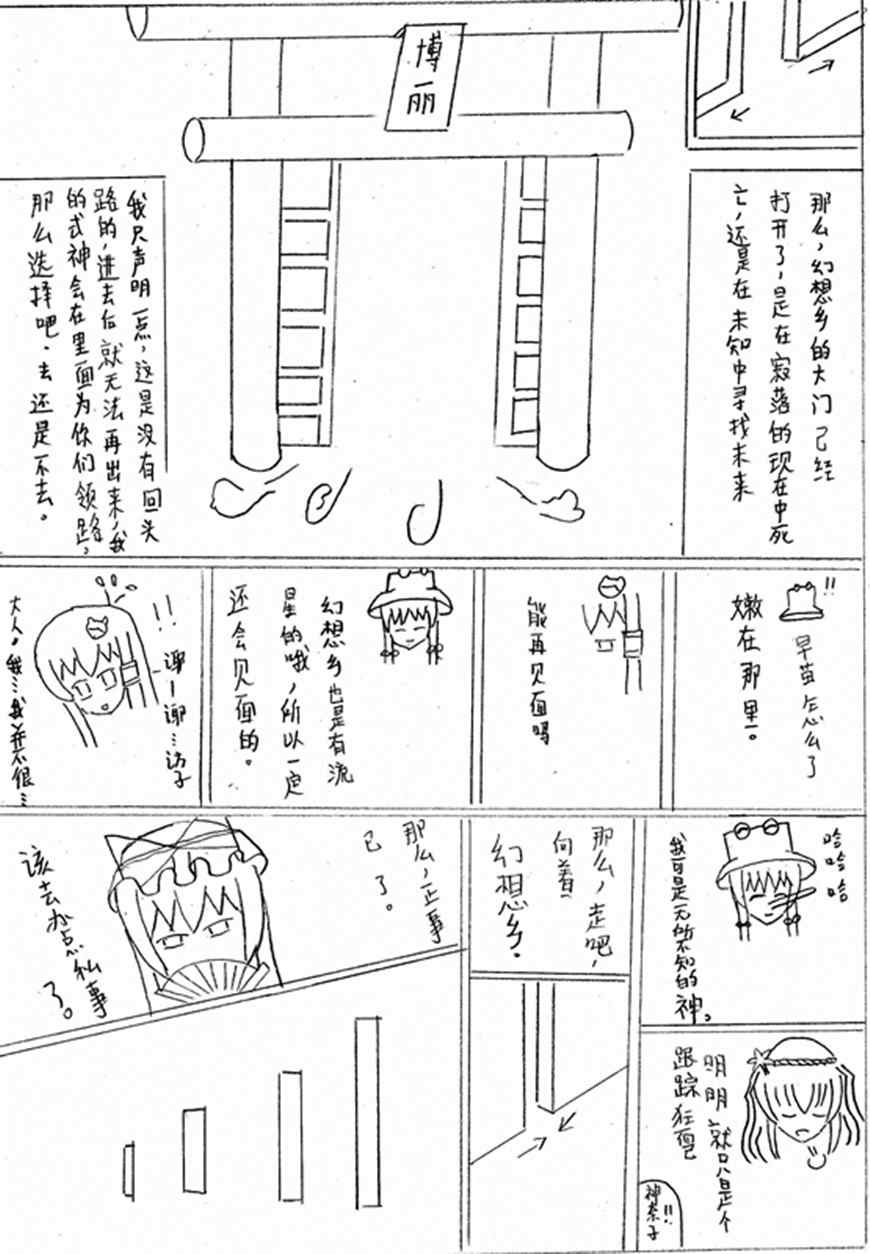 博丽
那么,幻想乡的大门已经
打开了,是在寂落的现在中死
亡,还是在未知中寻找未来
我只声明一点,这是没有回头
路的,进去后就无法再出来,我
的式神会在里面为你们领路,
那么选择吧.去还是不去。
!!
早苗怎么了
嫩在那里。
能再见面吗
幻想乡也是有流
星的哦,所以一定
还会见面的。
!!
谢-谢…访子
大人。我…我并不很…
哈哈哈
我可是无所不知的神。
明明就只是个
跟踪狂而已
神奈子!!
那么,走吧,
向着
幻想乡.
那么,正事
已了。
该去办点私事
了。